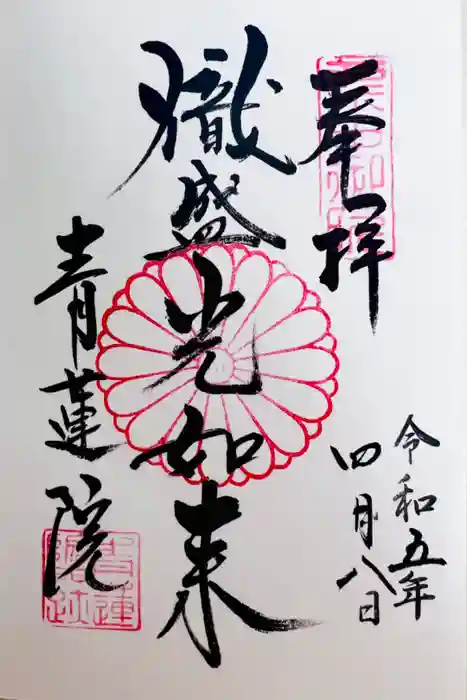 奉拝
令和五年
四月八日
熾盛光如来
青蓮院